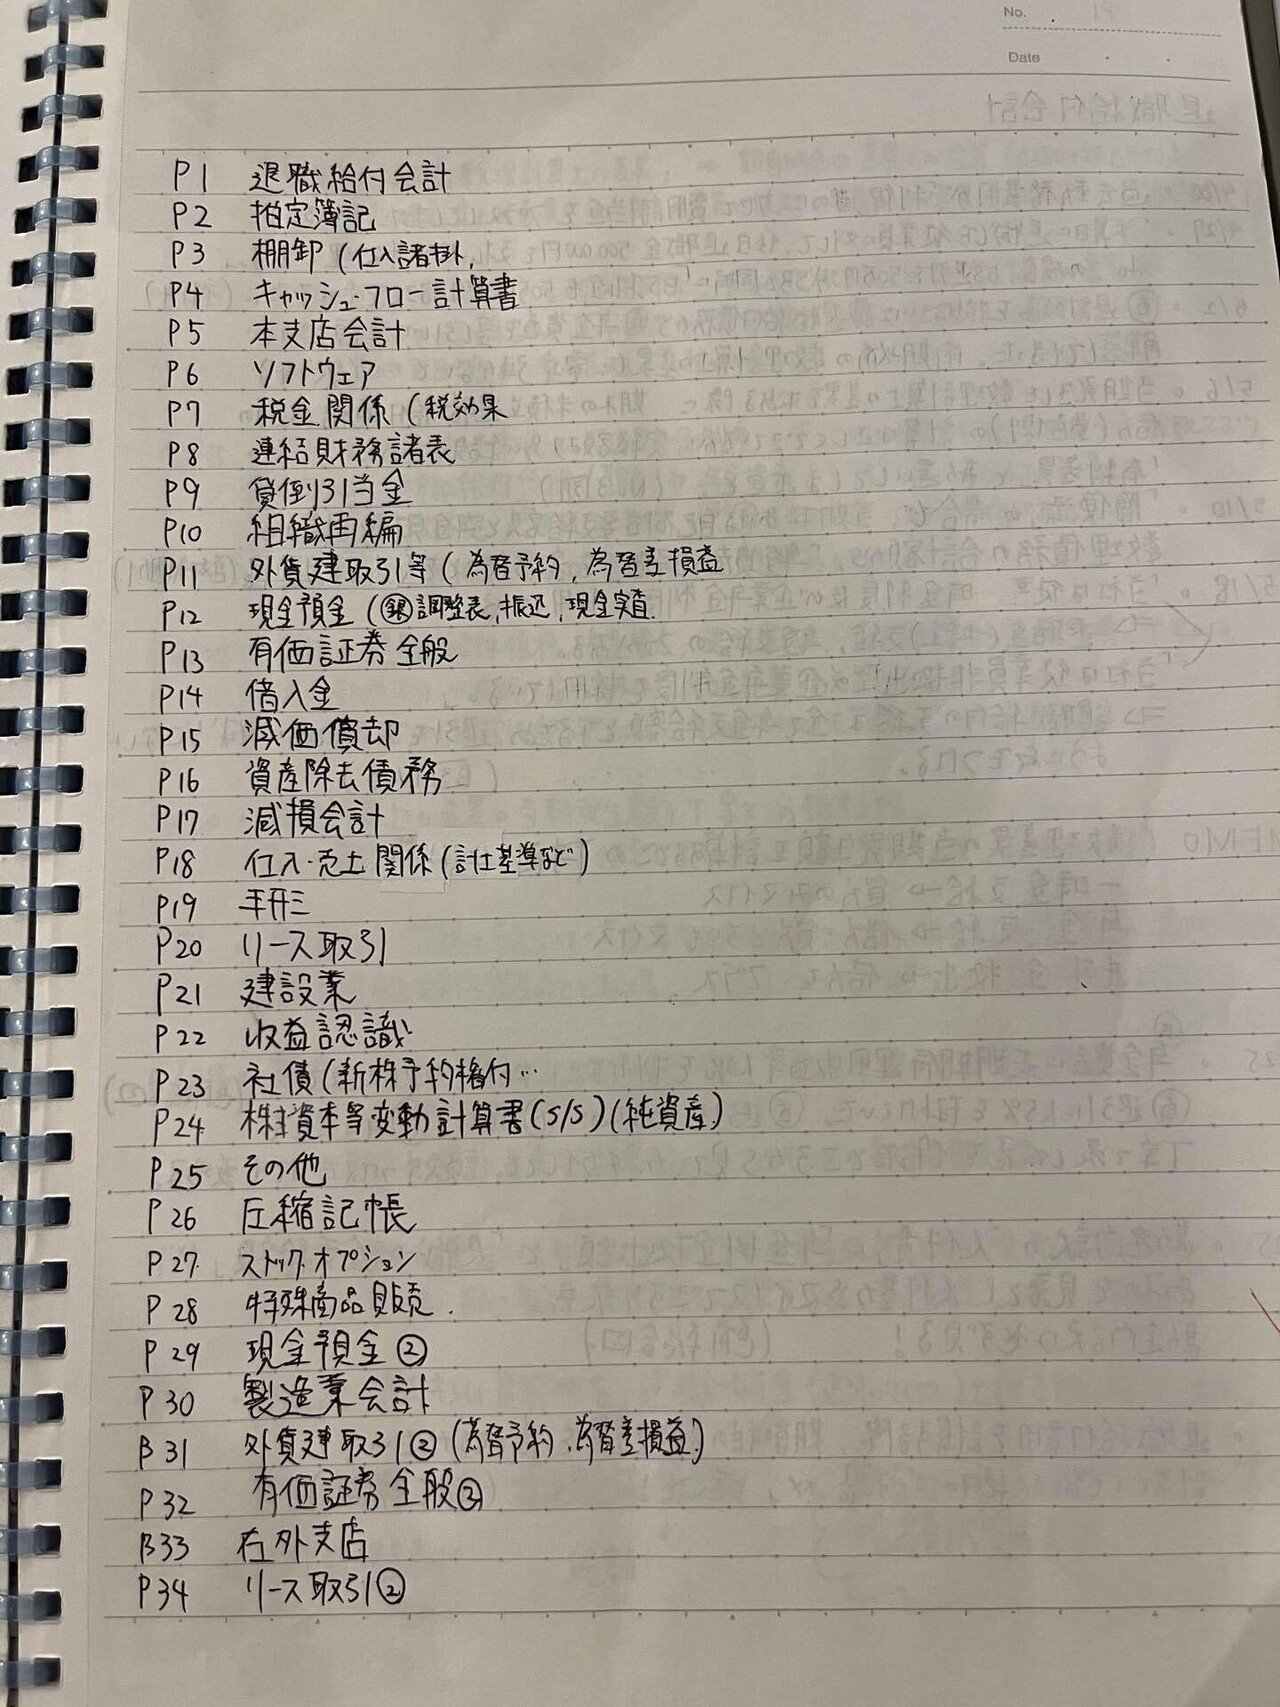 No.
Date
P1 退職給付会計
P2 推定簿記
P3 棚卸(仕入諸掛,
P4 キャッシュ・フロー計算書
P5 本支店会計
P6 ソフトウェア
P7 税金関係(税効果
P8 連結財務諸表
P9 貸倒引当金
P10 組織再編
P11 外貨建取引等(為替予約,為替差損益
P12 現金預金(銀調整表,振込,現金実査
P13 有価証券全般
P14 借入金
P15 減価償却
P16 資産除去債務
P17 減損会計
P18 仕入・売上関係(計上基準など)
P19 手形
P20 リース取引
P21 建設業
P22 収益認識
P23 社債(新株予約権付…
P24 株主資本等変動計算書(S/S)(純資産)
P25 その他
P26 圧縮記帳
P27 ストック・オプション
P28 特殊商品販売.
P29 現金預金②
P30 製造業会計
P31 外貨建取引②(為替予約,為替差損益)
P32 有価証券全般②
P33 在外支店
P34 リース取引②